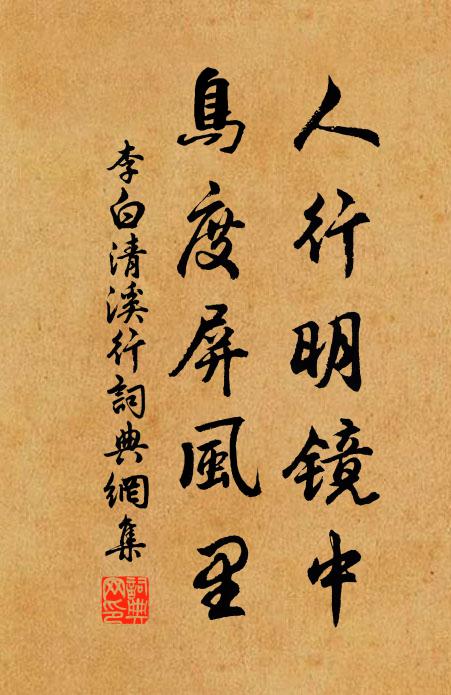 人行明镜中
鳥度屏風里
李白清溪行詞典網集
詞典
网印